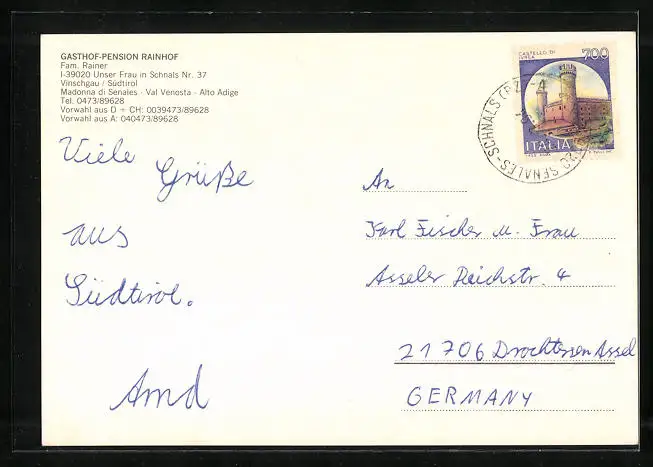 GASTHOF-PENSION RAINHOF
Fam. Rainer
I-39020 Unser Frau in Schnals Nr. 37
Vinschgau / Südtirol
Madonna di Senales - Val Venosta - Alto Adige
Tel. 0473/89628
Vorwahl aus D + CH: 0039473/89628
Vorwahl aus A: 040473/89628
CASTELLO DI
IVREA
700
ITALIA
SENALES-SCHNALS (BZ)
Viele
Grüße
aus
Südtirol.
An
Karl Fischer u. Frau
Asseler Deichstr. 4
21706 Drochtersen Assel
GERMANY